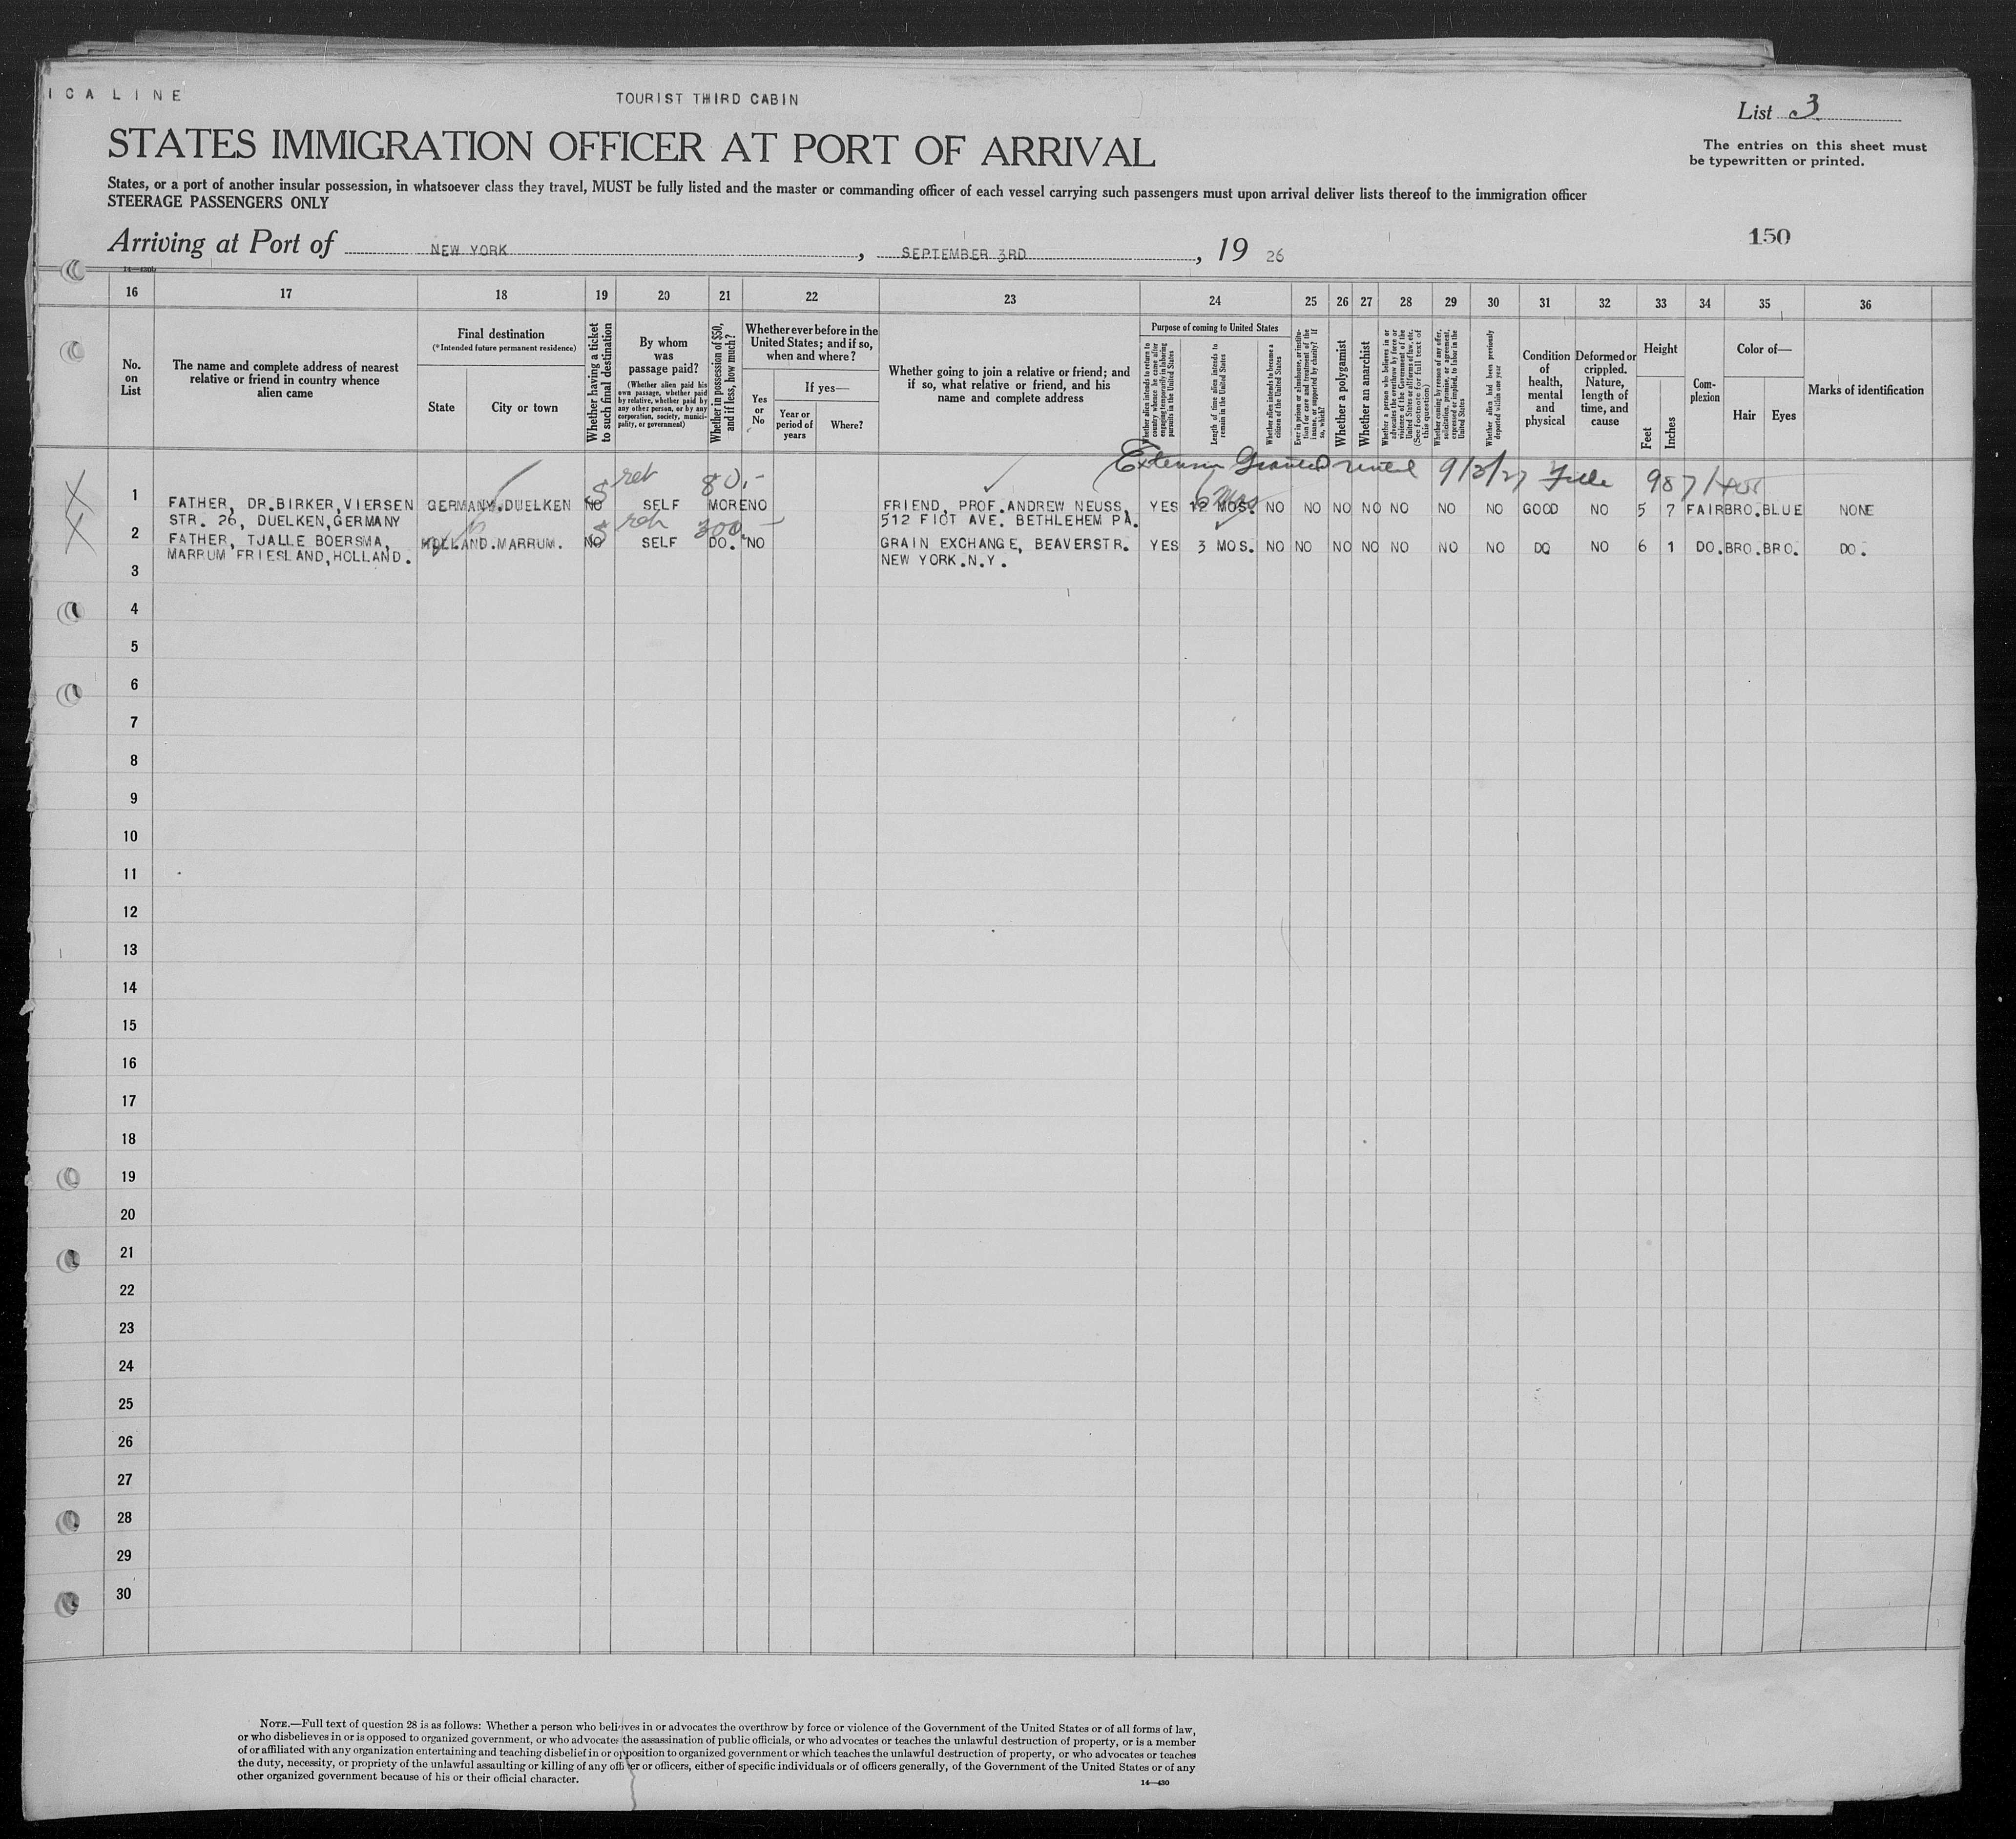 ICA LINE
TOURIST THIRD CABIN
List 3
STATES IMMIGRATION OFFICER AT PORT OF ARRIVAL
The entries on this sheet must
be typewritten or printed.
States, or a port of another insular possession, in whatsoever class they travel, MUST be fully listed and the master or commanding officer of each vessel carrying such passengers must upon arrival deliver lists thereof to the immigration officer
STEERAGE PASSENGERS ONLY
Arriving at Port of NEW YORK, SEPTEMBER 3RD, 19 26
150
14—430b
16 17 18 19 20 21 22 23 24 25 26 27 28 29 30 31 32 33 34 35 36
No.
on
List
The name and complete address of nearest
relative or friend in country whence
alien came
Final destination
(*Intended future permanent residence)
State
City or town
Whether having a ticket
to such final destination
By whom
was
passage paid?
(Whether alien paid his
own passage, whether paid
by relative, whether paid by
any other person, or by any
corporation, society, munici-
pality, or government)
Whether in possession of $50,
and if less, how much?
Whether ever before in the
United States; and if so,
when and where?
Yes
or
No
If yes—
Year or
period of
years
Where?
Whether going to join a relative or friend; and
if so, what relative or friend, and his
name and complete address
Purpose of coming to United States
Whether alien intends to return to
country whence he came after
engaging temporarily in laboring
pursuits in the United States
Length of time alien intends to
remain in the United States
Whether alien intends to become a
citizen of the United States
Ever in prison or almshouse, or institu-
tion for care and treatment of the
insane, or supported by charity? If
so, which?
Whether a polygamist
Whether an anarchist
Whether a person who believes in or
advocates the overthrow by force or
violence of the Government of the
United States or all forms of law, etc.
(See footnote for full text of
this question)
Whether coming by reason of any offer,
solicitation, promise, or agreement,
expressed or implied, to labor in the
United States
Whether alien had been previously
deported within one year
Condition
of
health,
mental
and
physical
Deformed or
crippled.
Nature,
length of
time, and
cause
Height
Feet
Inches
Com-
plexion
Color of—
Hair
Eyes
Marks of identification
Extension Granted until 9/3/27 File 987/
ret 80.-
6 Mos
1 FATHER, DR.BIRKER,VIERSEN GERMANY.DUELKEN NO SELF MORE NO FRIEND, PROF.ANDREW NEUSS, YES 12 MOS. NO NO NO NO NO NO NO GOOD NO 5 7 FAIR BRO. BLUE NONE
STR. 26, DUELKEN,GERMANY 512 FIOT AVE. BETHLEHEM PA.
ret 300.-
2 FATHER, TJALLE BOERSMA, HOLLAND.MARRUM. NO SELF DO. NO GRAIN EXCHANGE, BEAVERSTR. YES 3 MOS. NO NO NO NO NO NO NO DO NO 6 1 DO. BRO. BRO. DO.
MARRUM FRIESLAND,HOLLAND. NEW YORK.N.Y.
3
4
5
6
7
8
9
10
11
12
13
14
15
16
17
18
19
20
21
22
23
24
25
26
27
28
29
30
NOTE.—Full text of question 28 is as follows: Whether a person who believes in or advocates the overthrow by force or violence of the Government of the United States or of all forms of law,
or who disbelieves in or is opposed to organized government, or who advocates the assassination of public officials, or who advocates or teaches the unlawful destruction of property, or is a member
of or affiliated with any organization entertaining and teaching disbelief in or opposition to organized government or which teaches the unlawful destruction of property, or who advocates or teaches
the duty, necessity, or propriety of the unlawful assaulting or killing of any officer or officers, either of specific individuals or of officers generally, of the Government of the United States or of any
other organized government because of his or their official character.
14—430